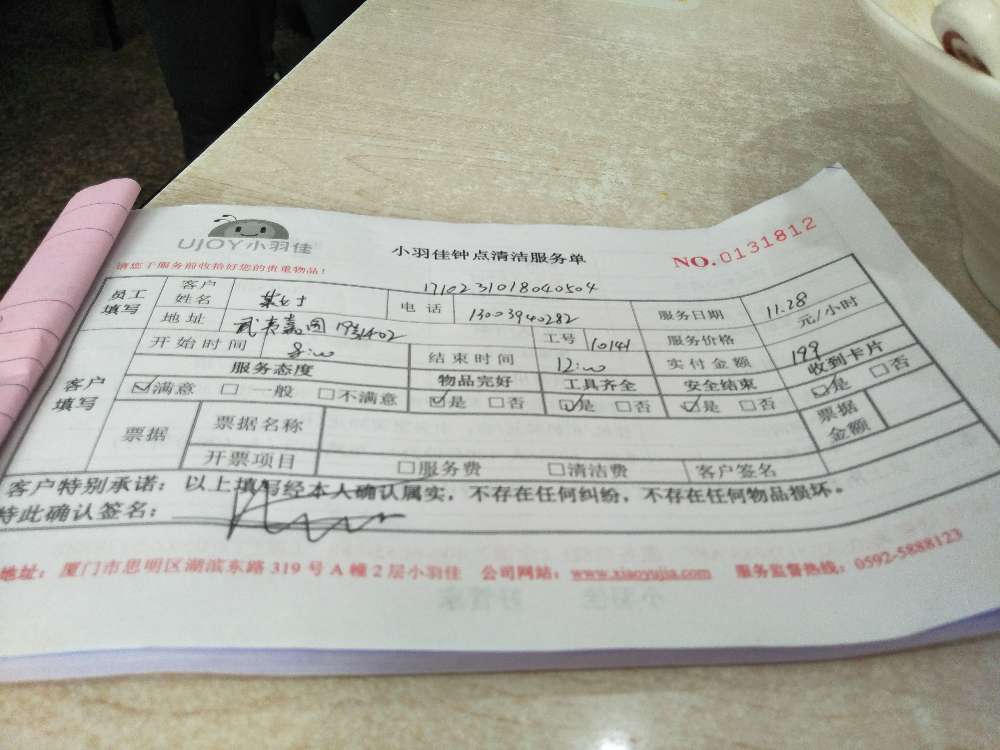 UJOY小羽佳
小羽佳钟点清洁服务单
NO.0131812
请您于服务前收拾好您的贵重物品！
1710231018040504
员工填写 客户姓名 女士 电话 13003940282 服务日期 11.28
地址 武夷嘉园 工号 10141 服务价格 元/小时
开始时间 8:00 结束时间 12:00 实付金额 199
客户填写 服务态度 物品完好 工具齐全 安全结束 收到卡片
☑满意 □一般 □不满意 ☑是 □否 ☑是 □否 ☑是 □否 ☑是 □否
票据 票据名称 票据金额
开票项目 □服务费 □清洁费 客户签名
客户特别承诺：以上填写经本人确认属实，不存在任何纠纷，不存在任何物品损坏。
特此确认签名：
地址：厦门市思明区湖滨东路319号A幢2层小羽佳 公司网站：www.xiaoyujia.com 服务监督热线：0592-5888123